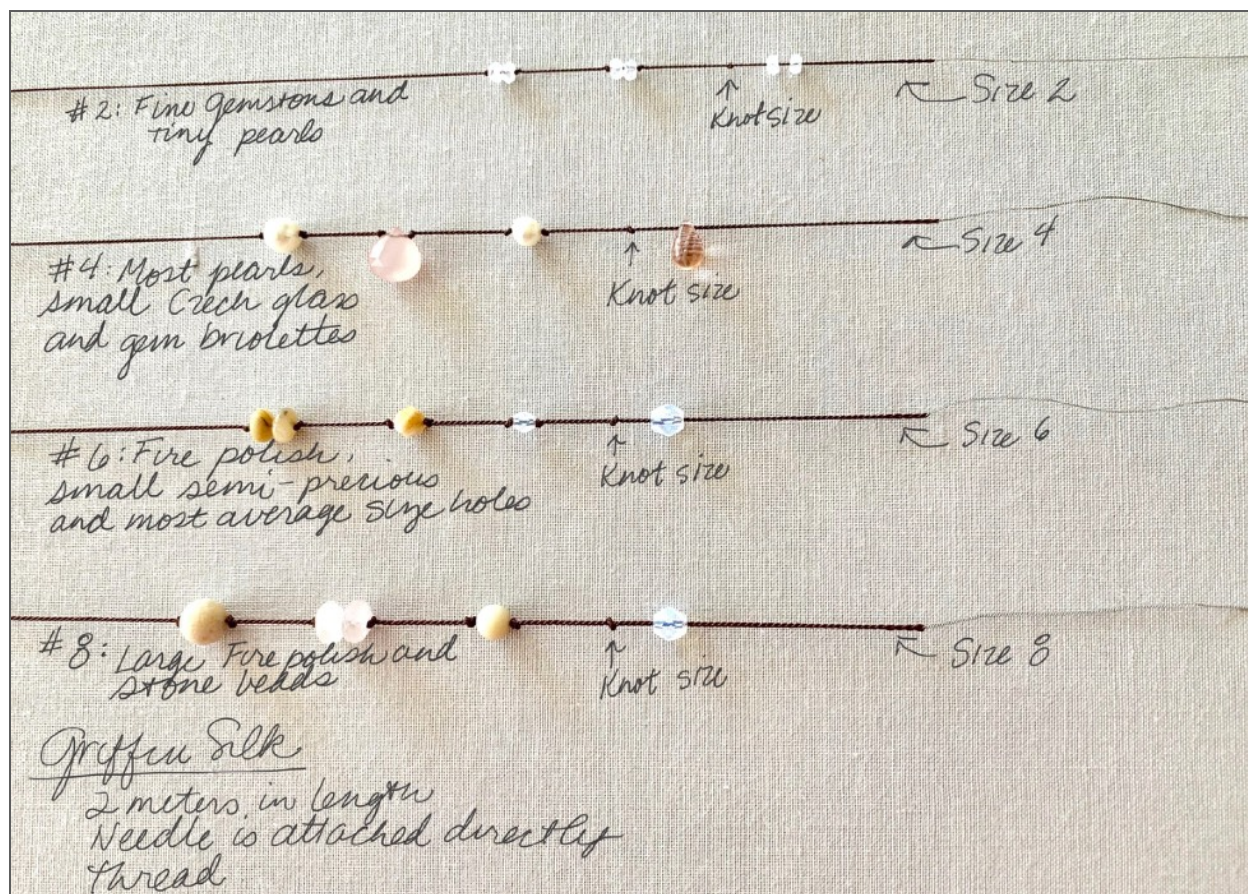 #2: Fine Gemstons and
tiny pearls
Knot size
Size 2
#4: Most pearls,
small Czech glass
and gem briolettes
Knot size
Size 4
#6: Fire polish,
small semi-precious
and most average size holes
Knot size
Size 6
#8: Large Fire polish and
stone beads
Knot size
Size 8
Griffin Silk
2 meters in length
Needle is attached directly
thread